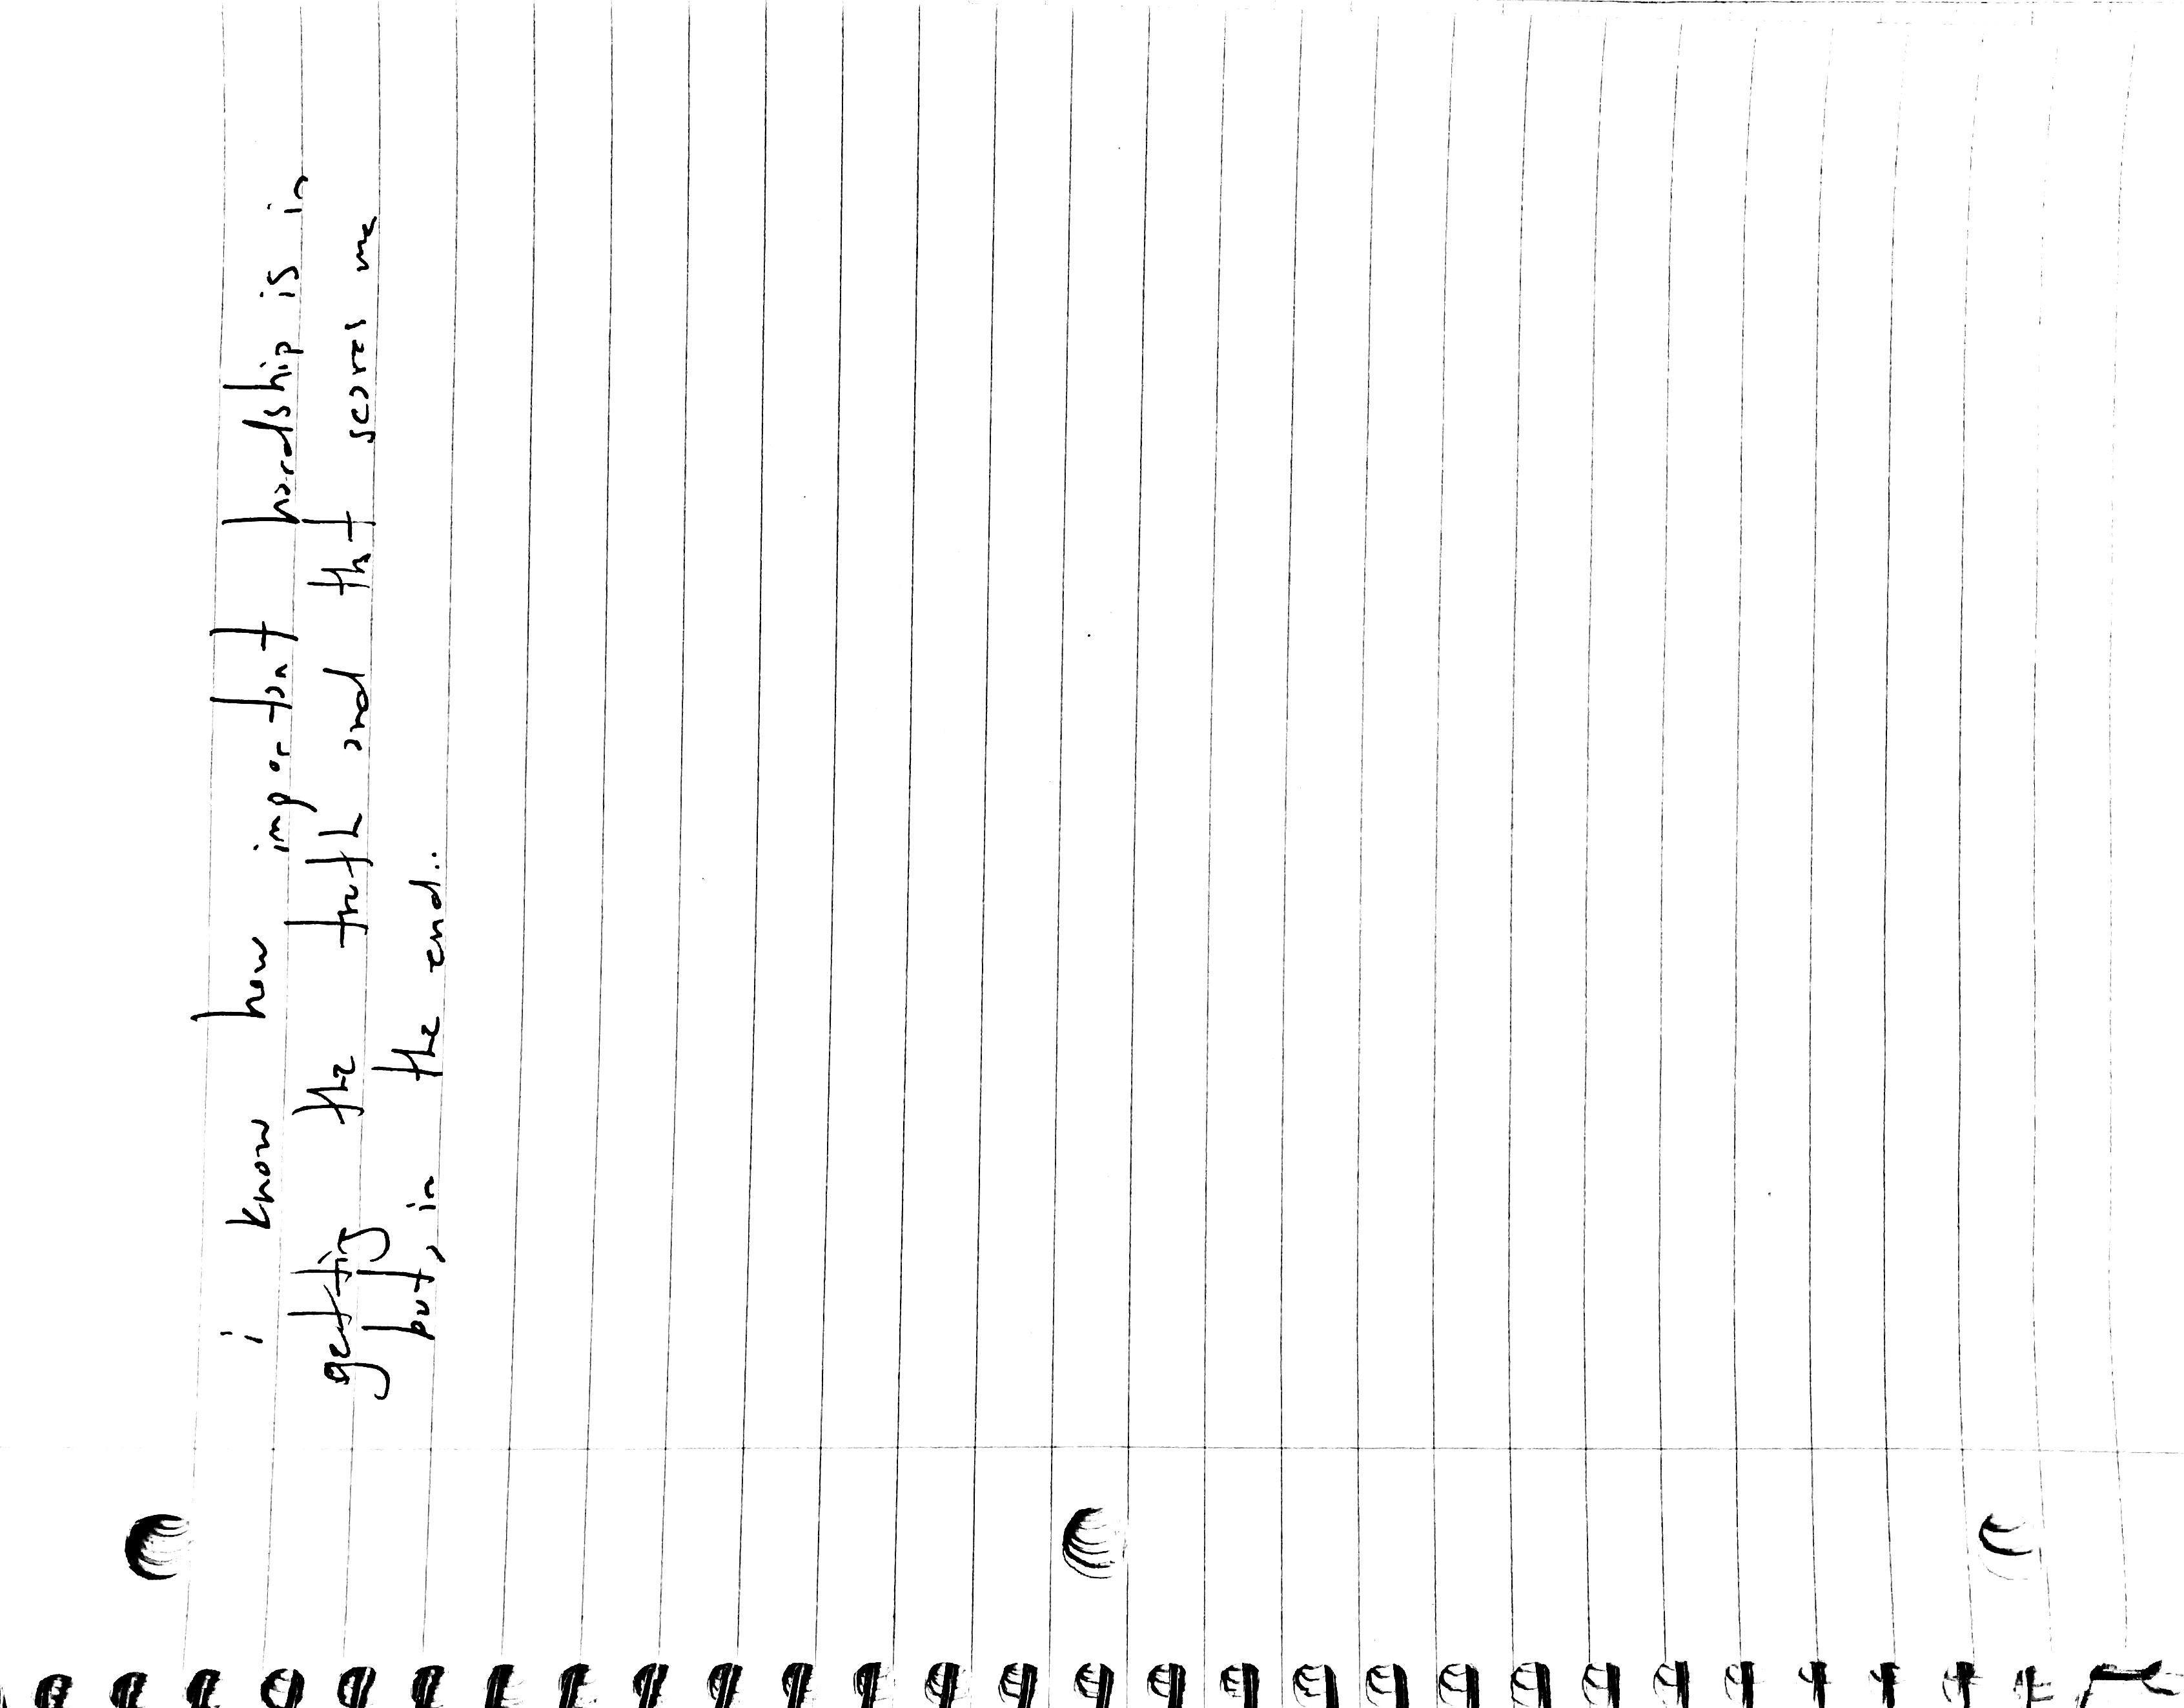 i know how important hardship is in
getting the truth and that scares me
but, in the end..